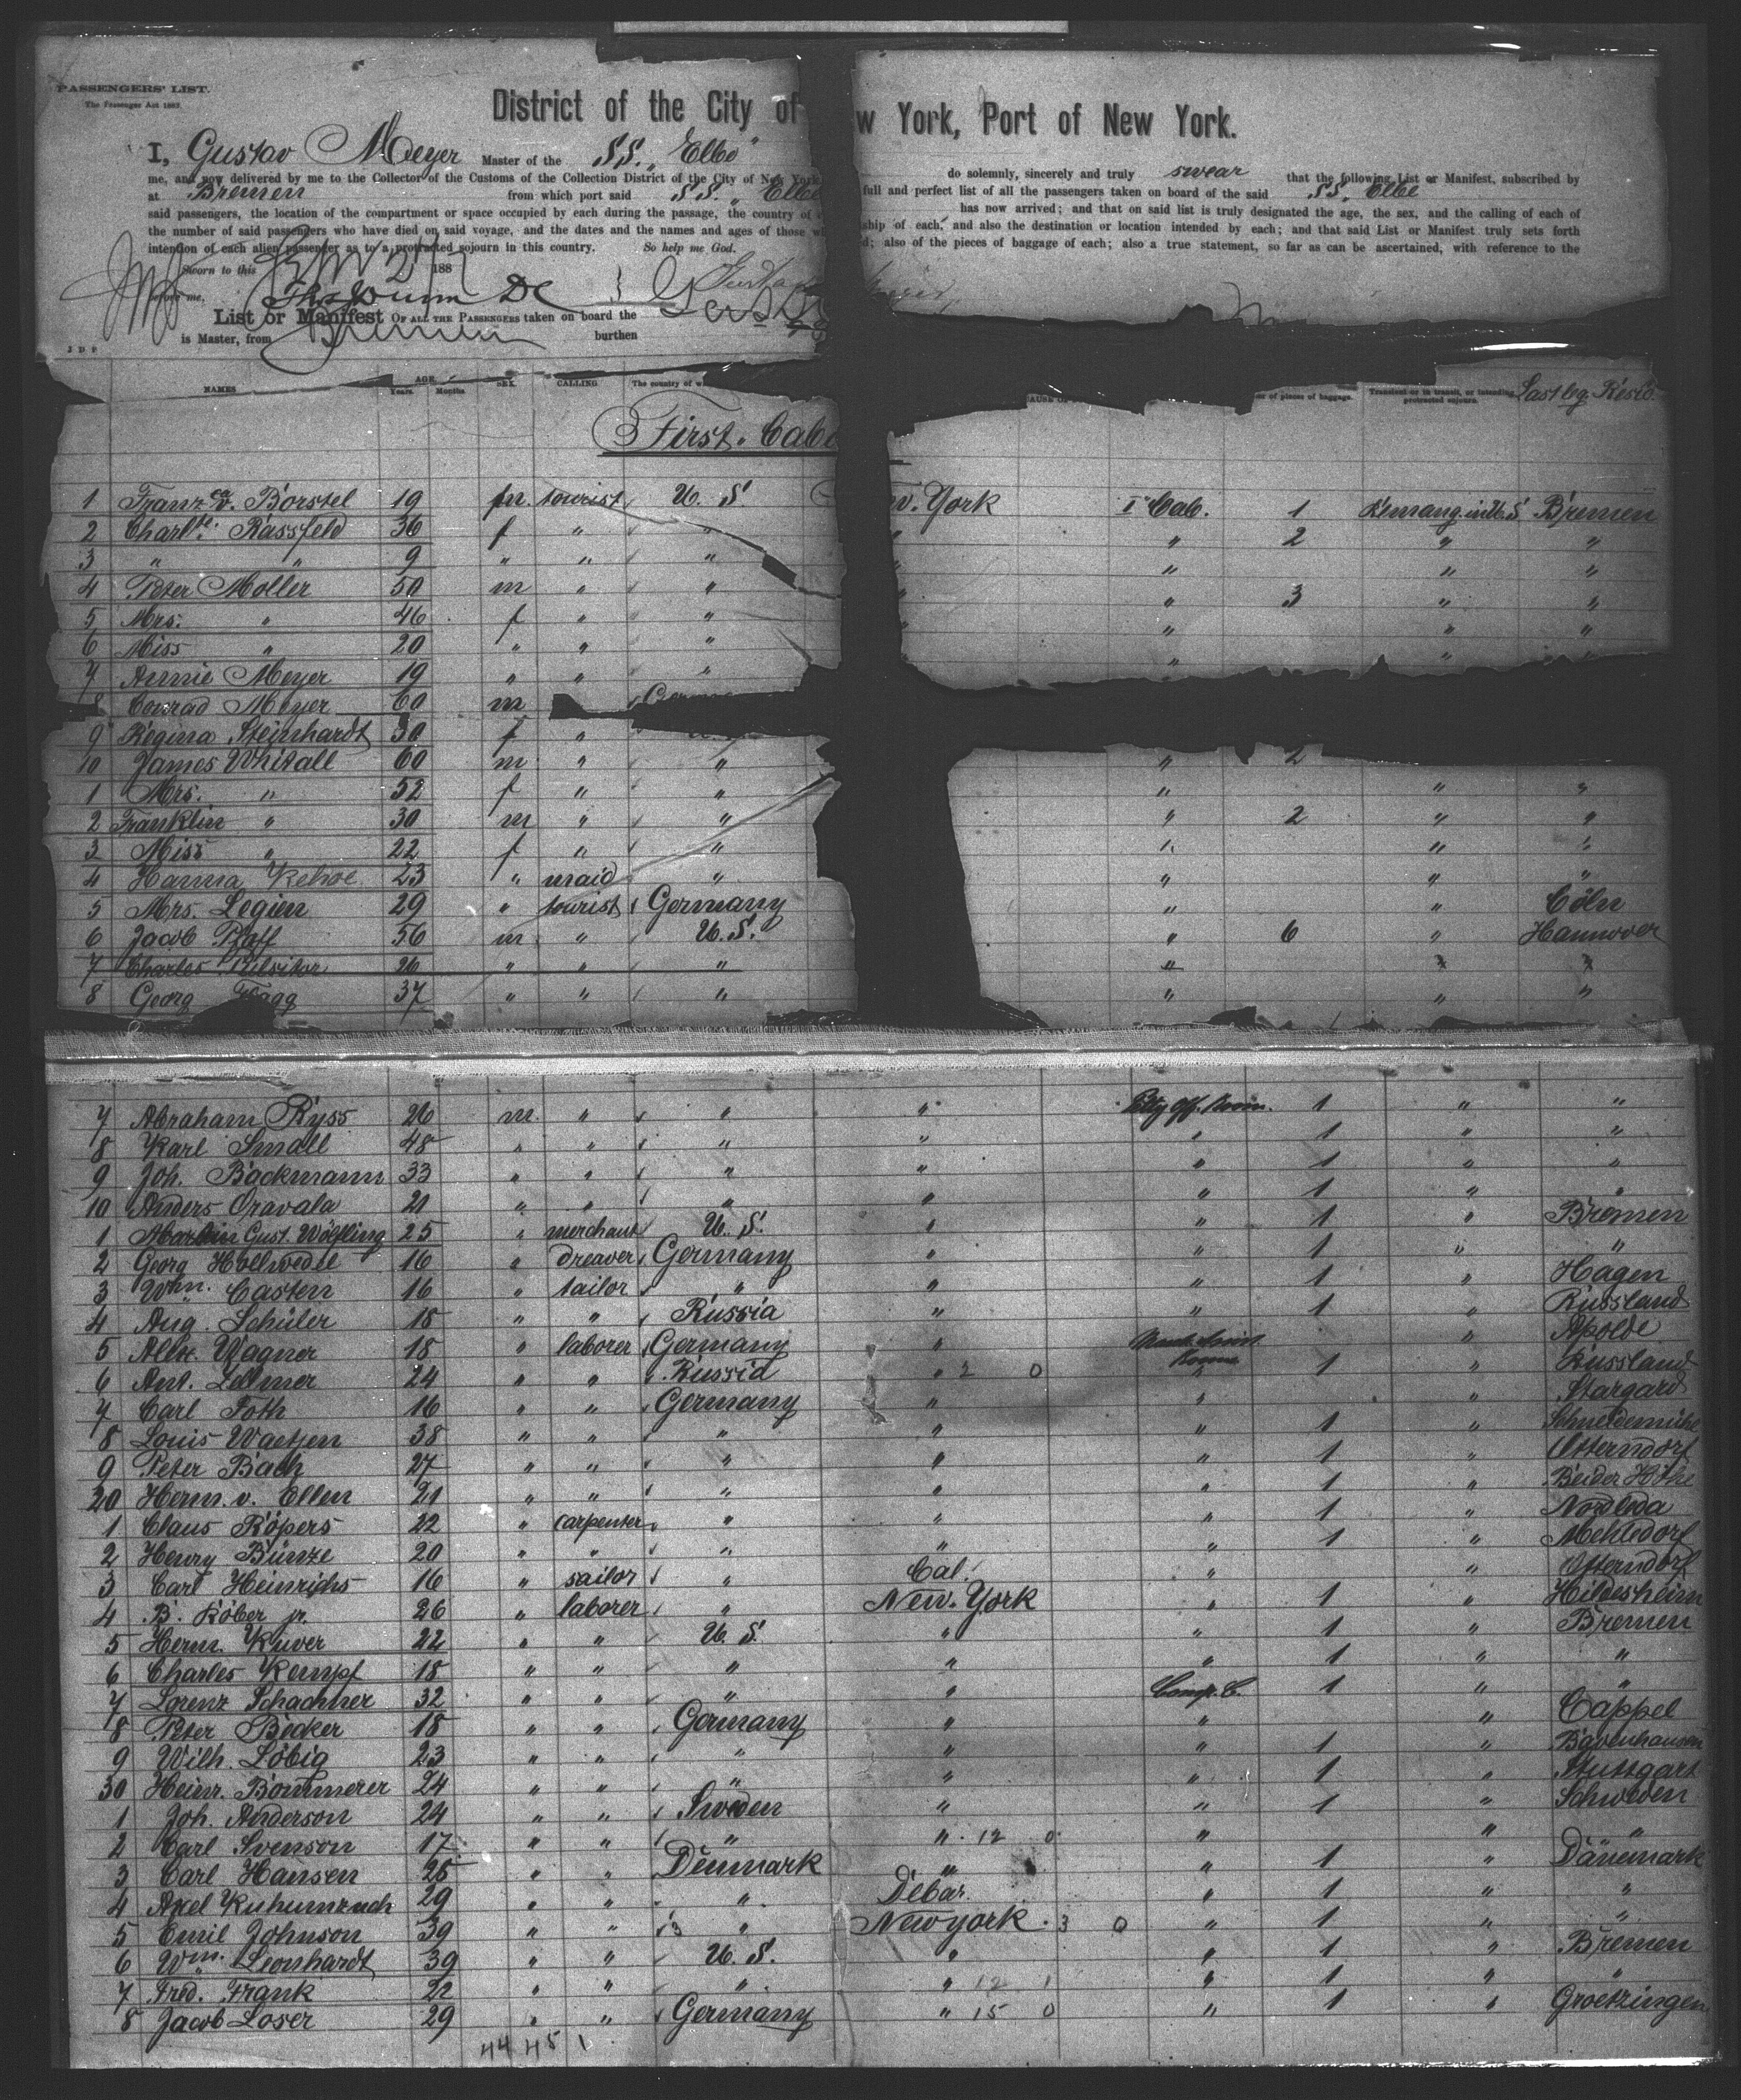 PASSENGERS' LIST.
The Passenger Act 1882.
District of the City of w York, Port of New York.
I, Gustav Meyer Master of the SS. „Elbe" do solemnly, sincerely and truly swear that the following List or Manifest, subscribed by
me, and now delivered by me to the Collector of the Customs of the Collection District of the City of New York full and perfect list of all the passengers taken on board of the said SS. Elbe
at Bremen from which port said SS. „Elbe has now arrived; and that on said list is truly designated the age, the sex, and the calling of each of
said passengers, the location of the compartment or space occupied by each during the passage, the country of ship of each, and also the destination or location intended by each; and that said List or Manifest truly sets forth
the number of said passengers who have died on said voyage, and the dates and the names and ages of those wh d; also of the pieces of baggage of each; also a true statement, so far as can be ascertained, with reference to the
intention of each alien passenger as to a protracted sojourn in this country. So help me God.
Sworn to this 188
before me,
List or Manifest OF ALL THE PASSENGERS taken on board the
is Master, from Bremen burthen
J D P
NAMES AGE Years. Months SEX. CALLING The country of w of pieces of baggage. Transient or in transit, or intending protracted sojourn. Last leg. Resid.
First. Cabi
1 Franz v. Borstel 19 m tourist U. S. w. York I Cab. 1 Bremen
2 Charltte. Rassfeld 36 f " " " " 2 " "
3 " " 9 " " " " " " "
4 Peter Moller 50 m " " " " 3 " "
5 Mrs. " 46 f " " " " " "
6 Miss " 20 " " " " " "
7 Annie Meyer 19 " " "
8 Conrad Meyer 60 m
9 Regina Steinhardt 30 f "
10 James Whitall 60 m " " " 2
1 Mrs. " 52 f " " " " "
2 Franklin " 30 m " " " 2 " "
3 Miss " 22 f " " " " "
4 Hanna Kehoe 23 " maid " " " "
5 Mrs. Legien 29 " tourist Germany " " Cöln
6 Jacob Pfaff 56 m " U. S. " 6 " Hannover
7 Charles 26 " " " " " "
8 Georg 37 " " " " " "
7 Abraham Ryss 26 m. " " " 1 " "
8 Karl Small 48 " " " " " 1 " "
9 Joh. Backmann 33 " " " " " 1 " "
10 Anders Oravala 21 " " " " " 1 " "
1 Gust. Wölfling 25 " merchant U. S. " " 1 " Bremen
2 Georg Hollwedel 16 " Germany " " 1 " "
3 Wm. Casten 16 " tailor " " " 1 " Hagen
4 Aug. Schüler 18 " " Russia " " 1 " Russland
5 Alex. Wagner 18 " laborer Germany " " Apolde
6 Ant. 24 " " Russia " 2 0 " 1 " Russland
7 Carl Foth 16 " " Germany " " " Stargard
8 Louis Waetjen 38 " " " " " 1 " Schneidemühl
9 Peter Bach 27 " " " " " 1 " Otterndorf
20 Herm. v. Ellen 21 " " " " " 1 "
1 Claus Röpers 22 " carpenter " " " 1 " Nordleda
2 Henry Bünze 20 " " " " " 1 " Mehedorf
3 Carl Heinrichs 16 " sailor " Cal. " " Otterndorf
4 B. Köber jr. 26 " laborer " New. York " 1 " Hildesheim
5 Herm. Kuver 22 " " U. S. " " 1 " Bremen
6 Charles Kempf 18 " " " " " 1 " "
7 Lorenz Schachner 32 " " " " Comp. C. 1 " "
8 Peter Becker 18 " " Germany " " " Cappel
9 Wilh. Löbig 23 " " " " " 1 " Bavenhausen
30 Heinr. Bommerer 24 " " " " " 1 " Stuttgart
1 Joh. Anderson 24 " " Sweden " " 1 " Schweden
2 Carl Svenson 17 " " " " 12 0 " " "
3 Carl Hansen 25 " " Denmark " " 1 " Dänemark
4 Axel 29 " " " " 1 " "
5 Emil Johnson 39 " " " New york 3 0 " 1 " "
6 Wm. Leonhardt 39 " " U. S. " " 1 " Bremen
7 Fred. Frank 22 " " " " 12 1 " 1 " "
8 Jacob Loser 29 " " Germany " 15 0 " 1 " Groetzingen
44 45 1